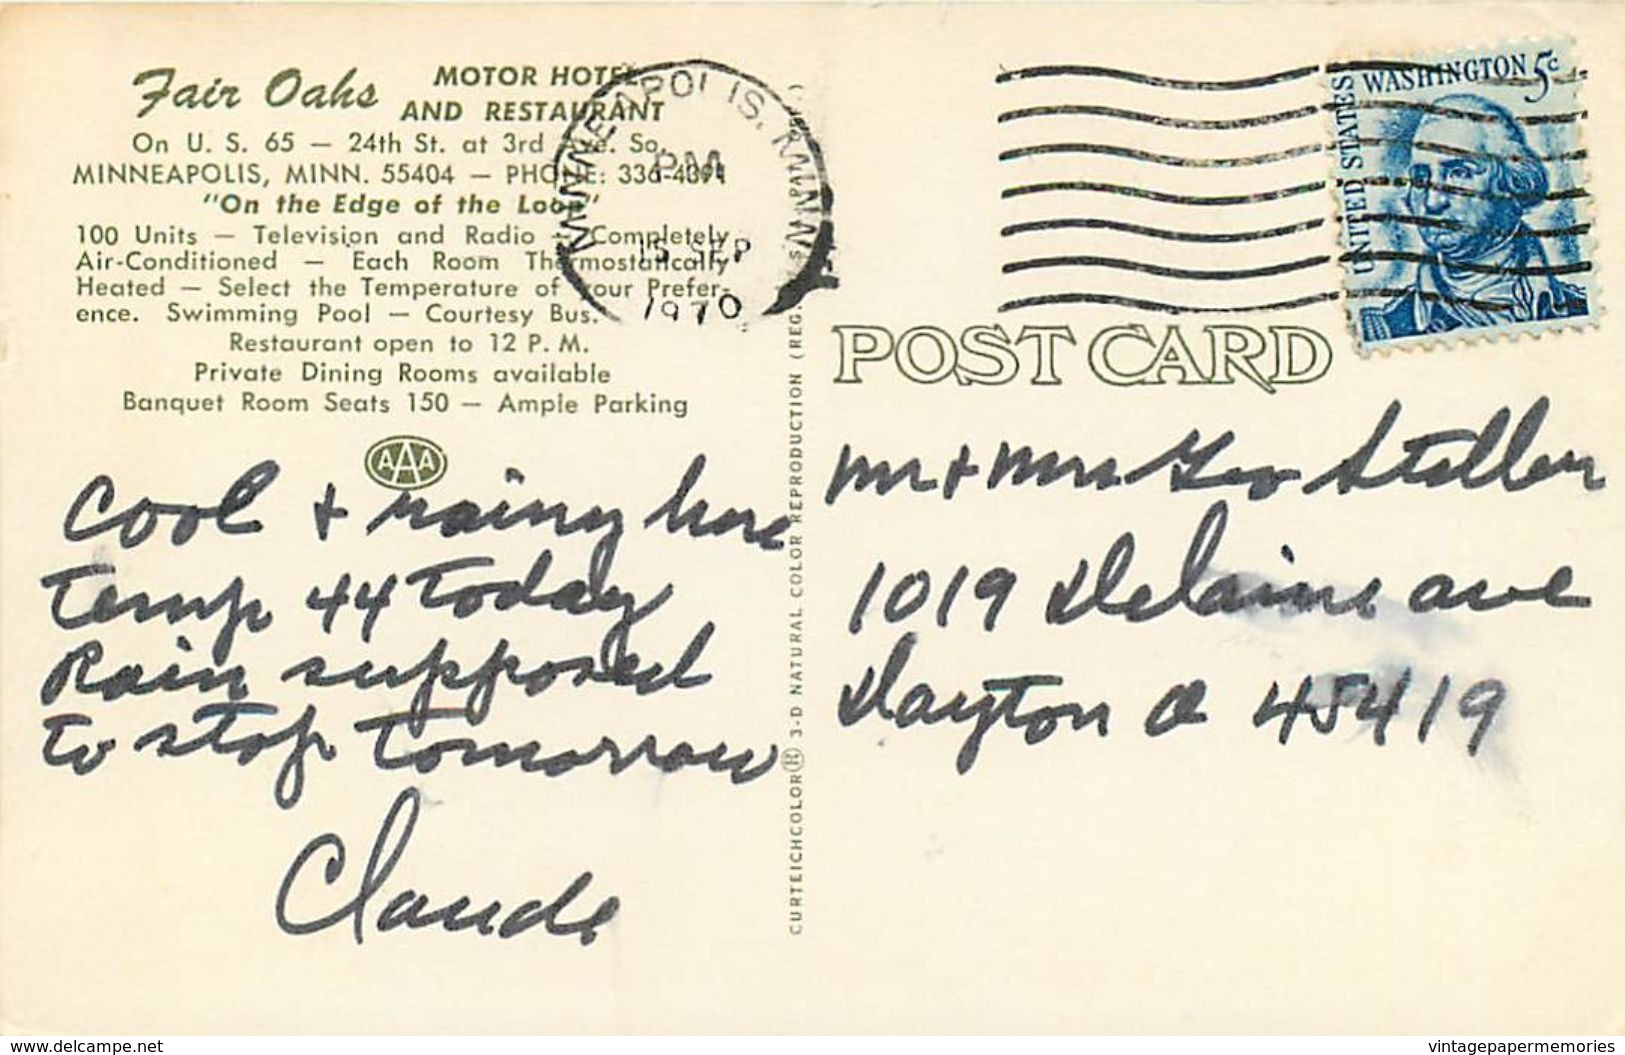 Fair Oaks MOTOR HOTEL
AND RESTAURANT
On U. S. 65 — 24th St. at 3rd Ave. So.
MINNEAPOLIS, MINN. 55404 — PHONE:
"On the Edge of the Loop"
100 Units — Television and Radio — Completely
Air-Conditioned — Each Room Thermostatically
Heated — Select the Temperature of your Prefer-
ence. Swimming Pool — Courtesy Bus.
Restaurant open to 12 P. M.
Private Dining Rooms available
Banquet Room Seats 150 — Ample Parking
AAA
Cool + rainy here
Temp 44 today
Rain supposed
to stop tomorrow
Claude
MINNEAPOLIS, MINN.
PM
15 SEP
1970
CURTEICHCOLOR® 3-D NATURAL COLOR REPRODUCTION (REG.
UNITED STATES
WASHINGTON 5c
POST CARD
Mr + Mrs Geo
1019 Delaine ave
Dayton O 45419
delcampe.net
vintagepapermemories